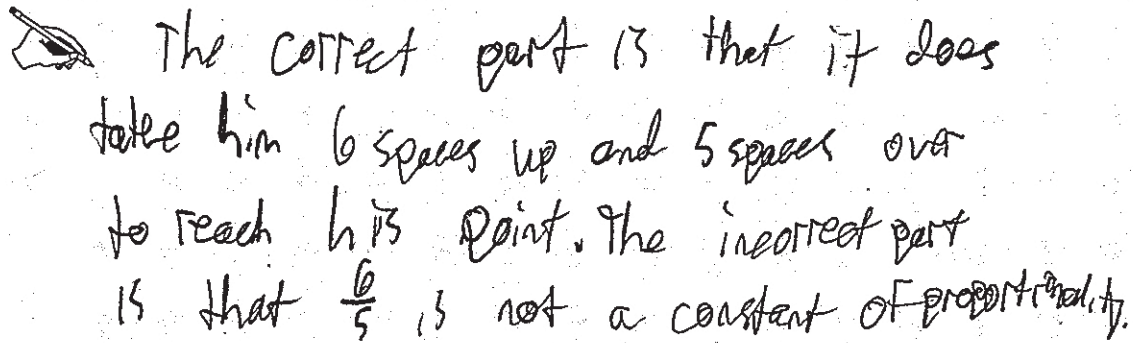 The correct part is that it does
take him 6 spaces up and 5 spaces over
to reach his point. The incorrect part
is that 6/5 is not a constant of proportionality.